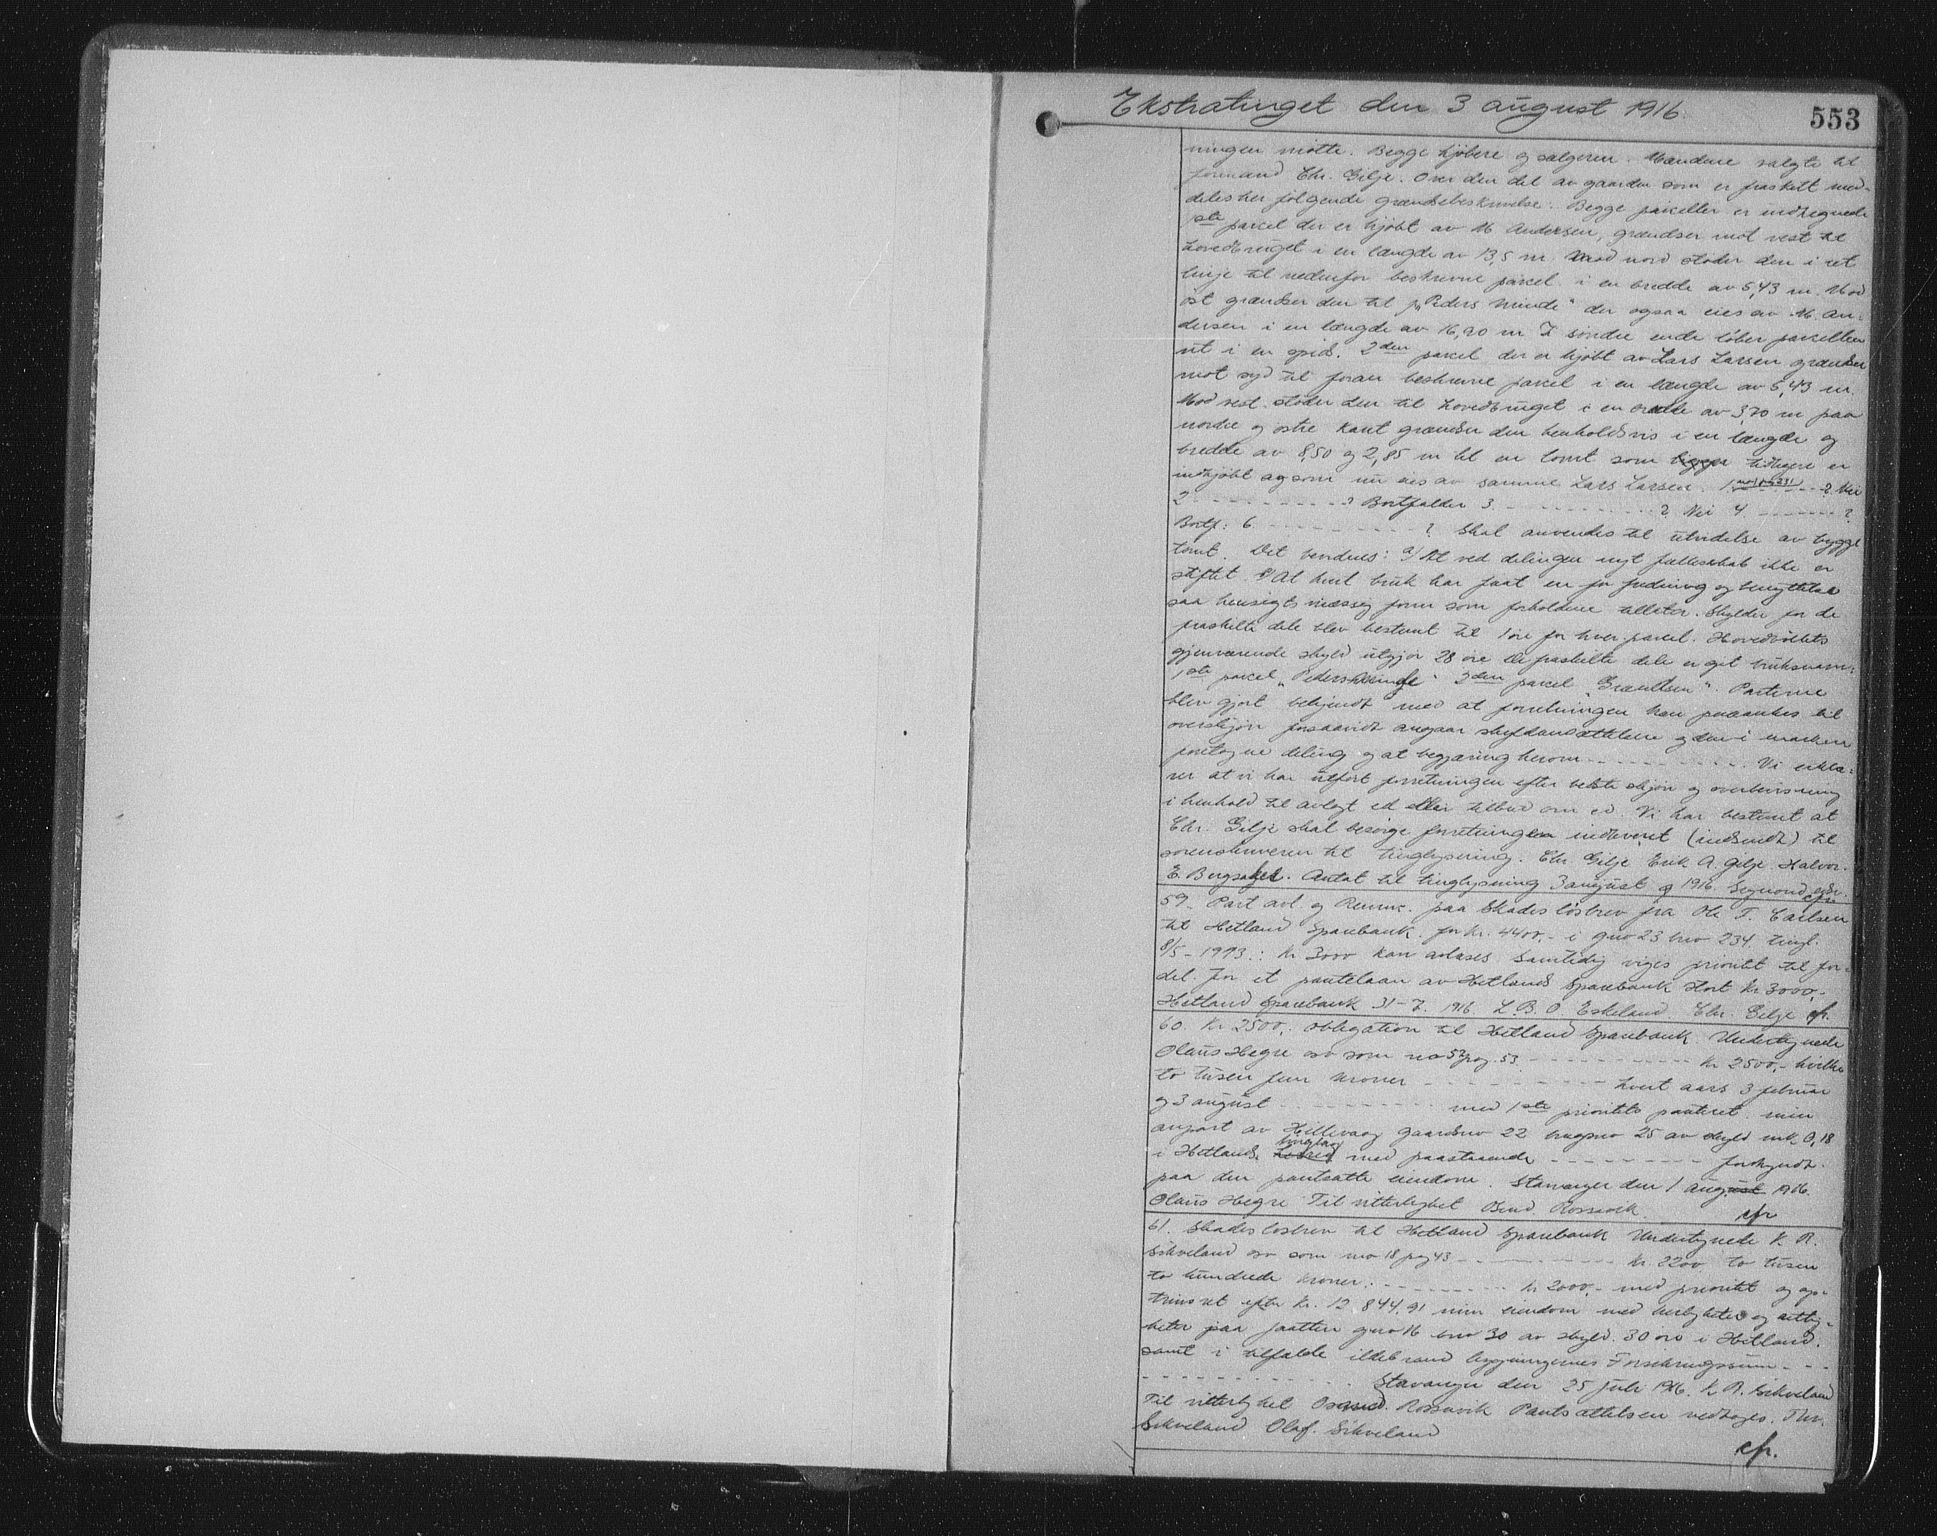 Ekstratinget den 3 august 1916.
553
ningen møtte. Begge kjøbere og sælgeren. Mændene valgte til
formand Chr. Gilje. Over den del av gaarden som er fraskilt med-
deles her følgende grændsebeskrivelse: Begge parceller er indhegnede
1ste parcel der er kjøbt av M. Andersen, grændser mot vest til
hovedbruget i en længde av 13,5 m. Mod nord støder den i ret
linje til nedenfor beskrevne parcel i en bredde av 5,43 m. Mod
øst grændser den til „Peders Minde“ der ogsaa eies av M. An-
dersen i en længde av 16,20 m I søndre ende løber parcellen
ut i en spids. 2den parcel der er kjøbt av Lars Larsen grændser
mot syd til foran beskrevne parcel i en længde av 5,43 m.
Mod vest støder den til hovedbruget i en bredde av 3,70 m paa
nordre og østre kant grændser den henholdsvis i en længde og
bredde av 8,50 og 2,85 m til en tomt som tidligere er
indkjøbt og som nu eies av samme Lars Larsen. 1 - - - ? Nei
2 - - - - - - ? Bortfalder 3 - - - - - - ? Nei 4 - - - - ?
Bortf: 6 - - - - - - ? Skal anvendes til utvidelse av bygge
tomt. Det bevidnes: a/ At ved delingen nyt fællesskab ikke er
stiftet. At hvert bruk har faat en for fredning og benyttelse
saa hensigtsmæssig form som forholdene tillater. Skylden for de
fraskilte dele blev bestemt til 1 øre for hver parcel. Hovedbølets
gjenværende skyld utgjør 28 øre De fraskilte dele er git bruksnavn:
1ste parcel „Pedersminde“ 2den parcel „Grændsen“. Parterne
blev gjort bekjendt med at forretningen kan paaankes til
overskjøn forsaavidt angaar skyldansættelsen og den i marken
foretagne deling og at begjæring herom - - - - - - - Vi erklæ-
rer at vi har utført forretningen efter bedste skjøn og overbevisning
i henhold til avlagt ed eller tilbud om ed. Vi har bestemt at
Chr. Gilje skal besørge forretningen indleveret (indsendt) til
sorenskriveren til tinglysning. Chr. Gilje Erik A. Gilje Halvor
E. Bergsaker. Antat til tinglysning 3 august 1916. Sigmund
cfr.
59. Part avl. og Renunc. paa Skadesløsbrev fra Ole T. Carlsen
til Hetland Sparebank for kr. 4400,- i gno 23 bno 234 tingl.
8/5 - 1913.: kr 3000 kan avlæses samtidig viges prioritet til for-
del for et pantelaan av Hetlands Sparebank stort kr 3000,-
Hetland Sparebank 31-7. 1916 L. B. O. Eskeland. Chr. Gilje cfr.
60. kr 2500,- obligation til Hetland Sparebank Undertegnede
Olaus Hegre osv som no 53 pag. 53 - - - - - - - kr 2500,- hvilke
to tusen fem kroner - - - - - - - - hvert aars 3 februar
og 3 august - - - - - - - med 1ste prioritets panteret min
anpart av Hillevaag gaardsno 22 brugsno 25 av skyld mk 0,18
i Hetlands tinglag med paastaaende - - - - - - - - forkyndt
paa den pantsatte eiendom. Stavanger den 1 august 1916.
Olaus Hegre Til vitterlighet Bend. Rossavik cfr
61. Skadesløsbrev til Hetland Sparebank Undertegnede K. R.
Sikveland osv som no 18 pag 43 - - - - - - - kr. 2200 to tusen
to hundrede kroner: - - - - - - kr 2000,- med prioritet og op-
trinsret efter kr. 12 844,91 min eiendom med herligheter og rettig-
heter paa Jaatten gno 16 bno 30 av skyld 30 øre i Hetland.
samt i tilfælde ildebrand bygningernes Forsikringssum - - -
- - - - - - - - - Stavanger den 25 Juli 1916. K. R. Sikveland
Til vitterlighet Rossavik Pantsættelsen vedtages. Thr.
Sikveland Olaf. Sikveland
cfr.